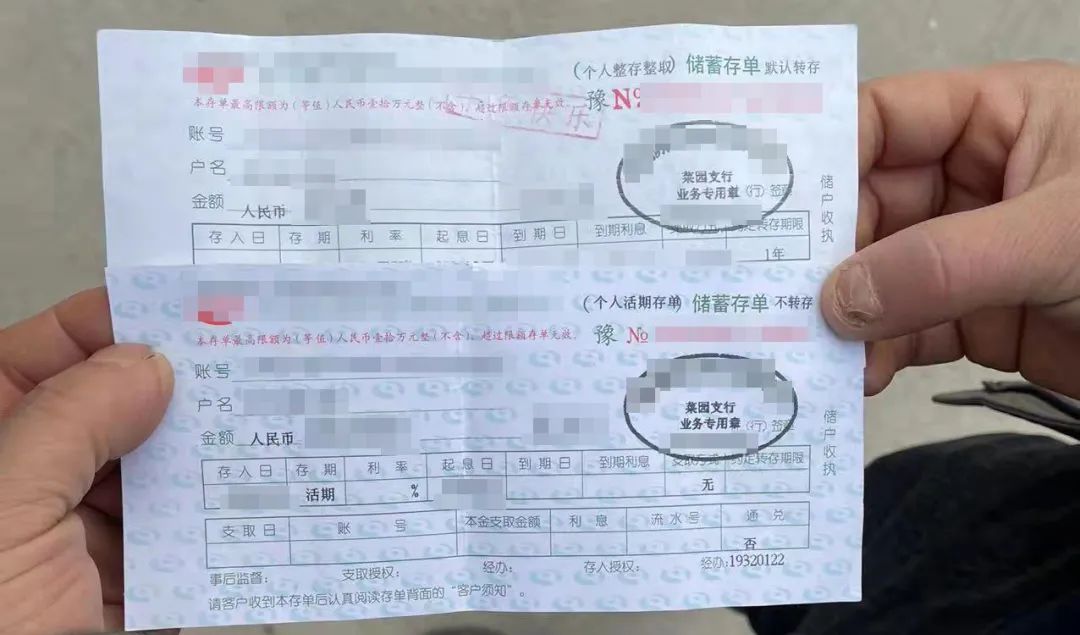 (个人整存整取) 储蓄存单 默认转存
本存单最高限额为(等值)人民币壹拾万元整(不含)，超过限额存单无效。 豫 No
乐
账号
户名
菜园支行
业务专用章 (行)签章
金额 人民币
储户收执
存入日 存期 利率 起息日 到期日 到期利息 约定转存期限
1年
(个人活期存单) 储蓄存单 不转存
本存单最高限额为(等值)人民币壹拾万元整(不含)，超过限额存单无效。 豫 No
账号
户名
菜园支行
业务专用章 (行)签章
金额 人民币
储户收执
存入日 存期 利率 起息日 到期日 到期利息 支取方式 约定转存期限
活期 % 无
支取日 账号 本金支取金额 利息 流水号 通兑
否
事后监督： 支取授权： 经办： 存入授权： 经办：19320122
请客户收到本存单后认真阅读存单背面的“客户须知”。